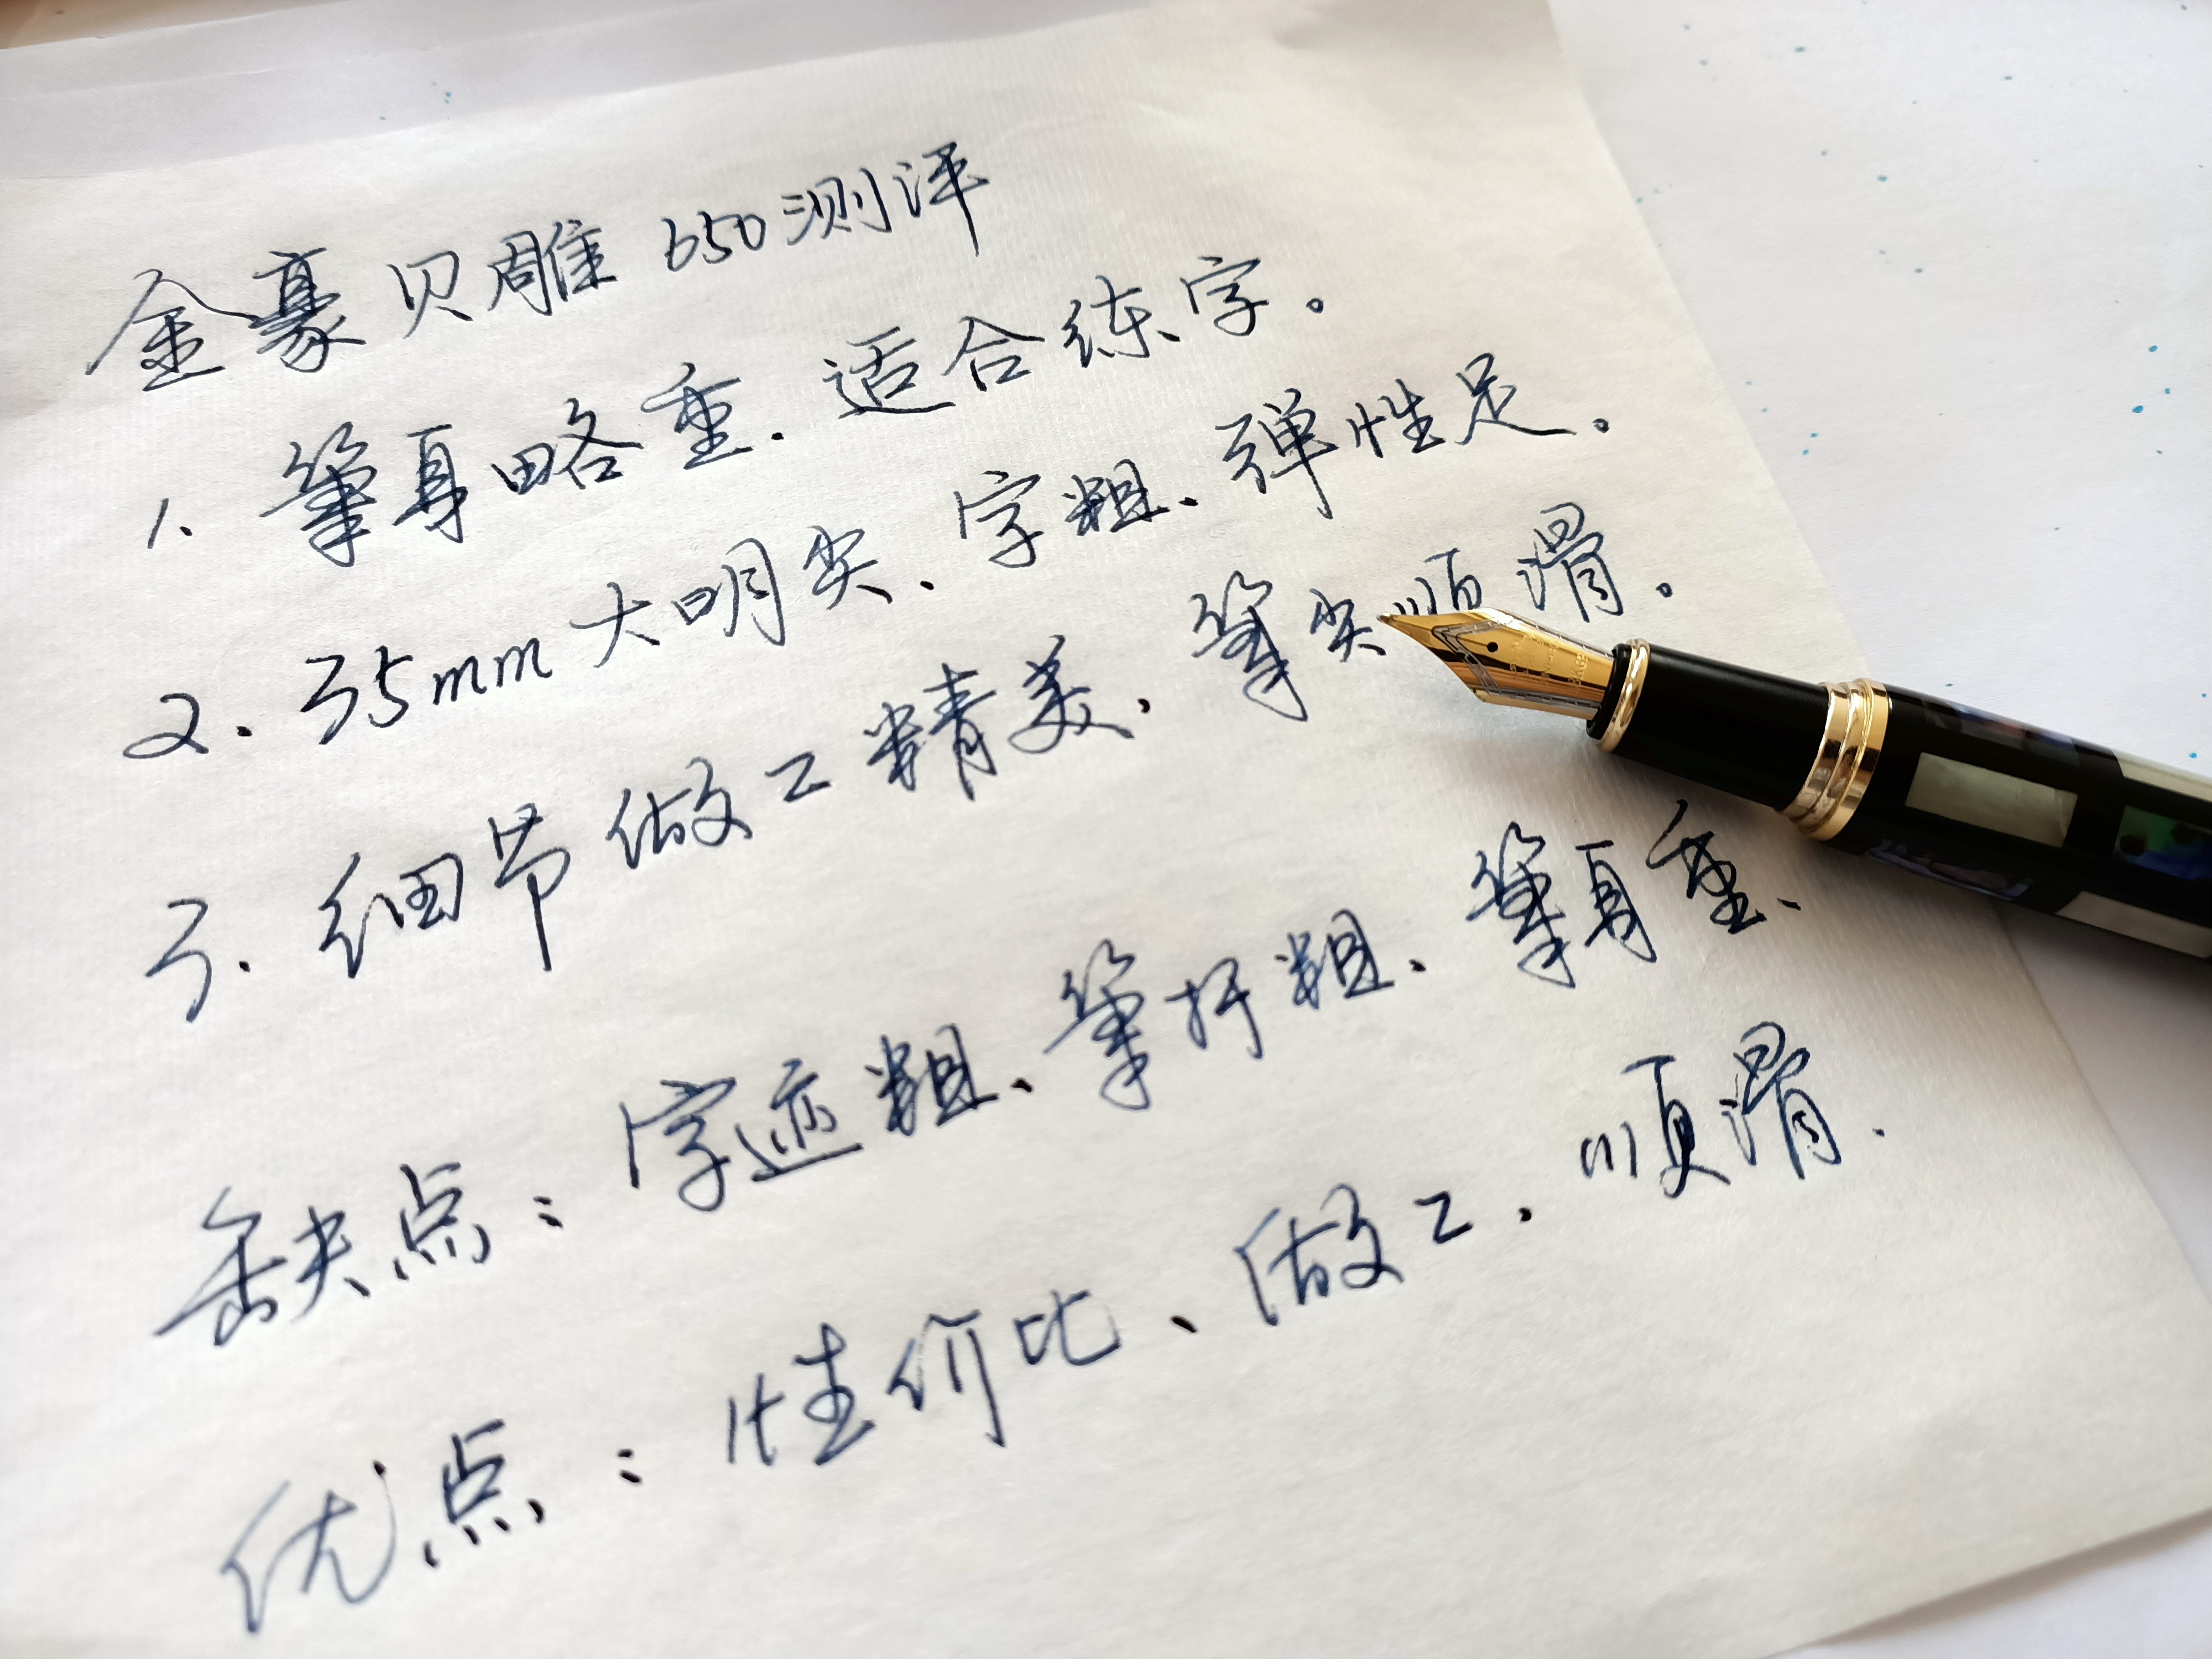 金豪贝雕 650测评
1、筆身略重.适合练字。
2. 35mm大明尖、字粗、弹性足。
3. 细节做工精美、筆尖顺滑。
缺点：字迹粗、筆杆粗、筆身重、
优点：性价比、做工、顺滑.